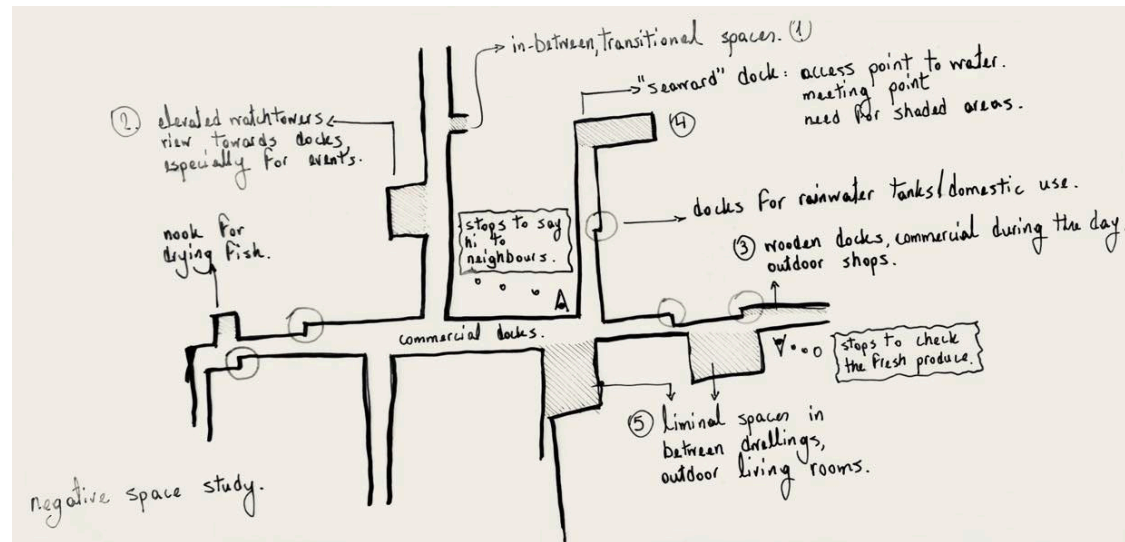 in-between, transitional spaces. ①
"seaward" dock: access point to water.
meeting point
need for shaded areas.
④
② elevated watchtowers
view towards docks,
especially for events.
docks for rainwater tanks/domestic use.
nook for
drying fish.
stops to say
hi to
neighbours.
③ wooden docks, commercial during the day.
outdoor shops.
commercial docks.
stops to check
the fresh produce.
⑤ liminal spaces in
between dwellings,
outdoor living rooms.
negative space study.